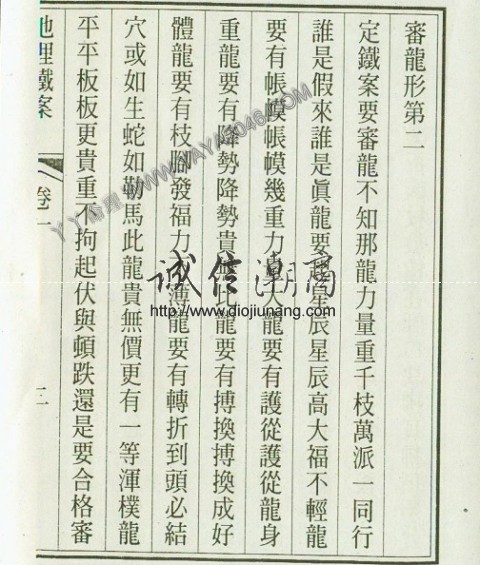 審龍形第二
定鐵案要審龍不知那龍力量重千枝萬派一同行
誰是假來誰是眞龍要起星辰星辰高大福不輕龍
要有帳幙帳幙幾重力量大龍要有護從護從龍身
重龍要有降勢降勢貴無比龍要有搏換搏換成好
體龍要有枝腳發福力薄龍要有轉折到頭必結
穴或如生蛇如勒馬此龍貴無價更有一等渾樸龍
平平板板更貴重不拘起伏與頓跌還是要合格審
地理鐵案
卷一
二
诚信潮阁
http://www.diojiunang.com